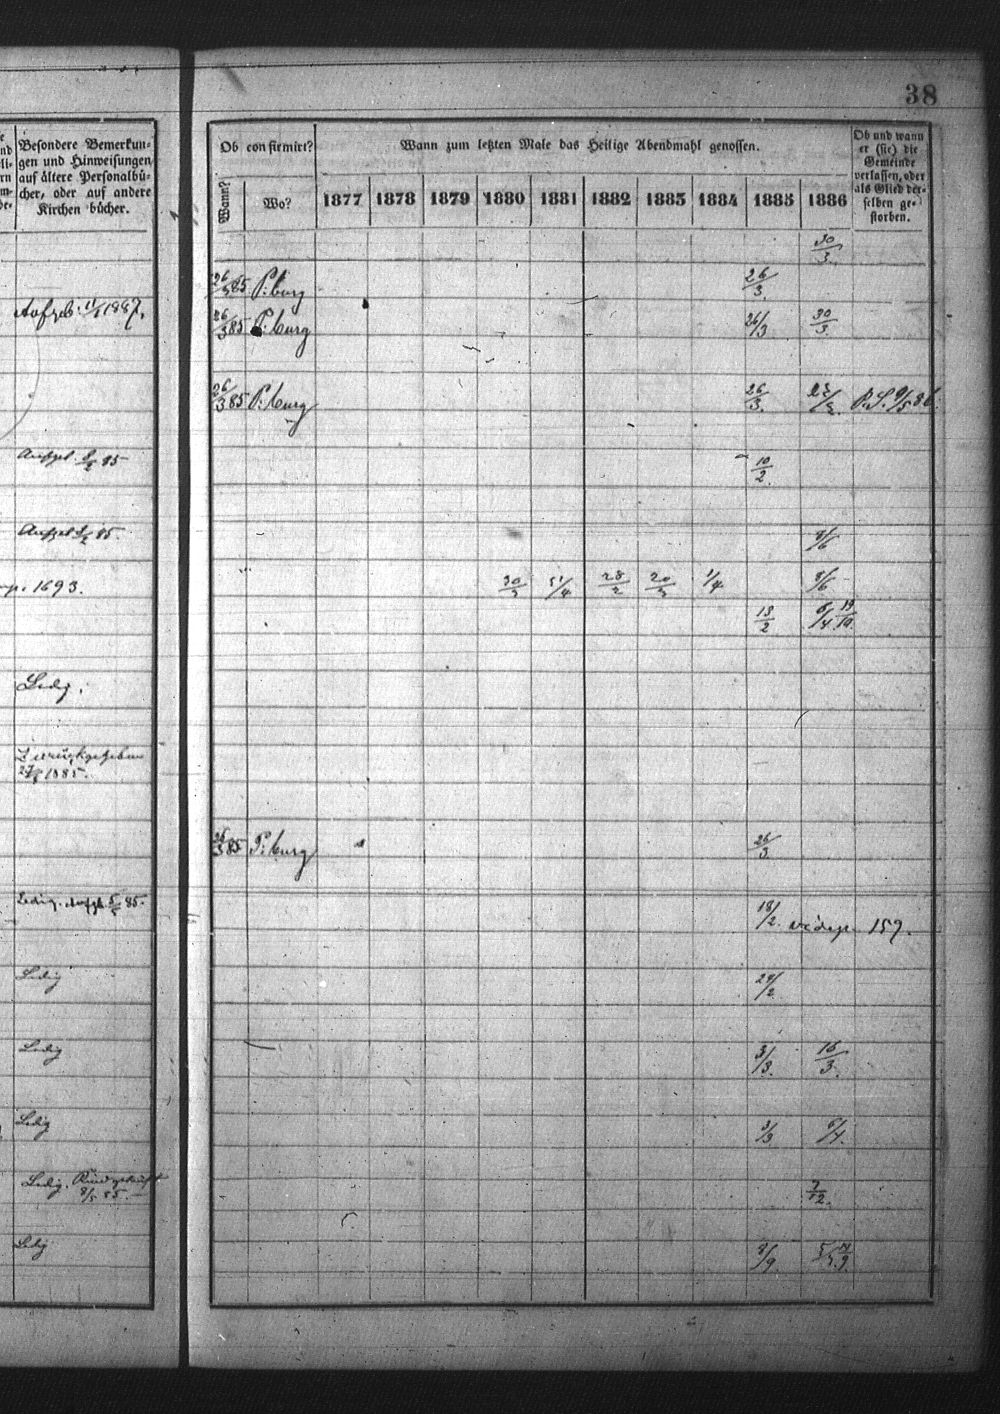 38
Besondere Bemerkun-
gen und Hinweisungen
auf ältere Personalbü-
cher, oder auf andere
Kirchen bücher.
Ob confirmirt?
Wann zum letzten Male das Heilige Abendmahl genossen.
Ob und wann
er (sie) die
Gemeinde
verlassen, oder
als Glied der-
selben ge-
storben.
Wann? Wo? 1877 1878 1879 1880 1881 1882 1883 1884 1885 1886
30/3.
26/3 85 P:burg 26/3.
Aufgeb: 11/1 1887.
26/3 85 P:burg 26/3 30/3.
26/3 85 P:burg 26/3. 23/3. P.S. 9/5 86.
Aufgeb. 85 10/2.
Aufgeb 85. 8/6
1693. 30/3 5/4 28/2 20/3 1/4 8/6
13/2 6/4 19/10.
Ledig.
Zurückgegeben
1885.
26/3 85 P:burg 26/3.
Ledig. Aufgb. 85. 18/2. vide p. 159.
Ledig 24/2
Ledig 3/3. 16/3.
Ledig 3/3 6/4.
Ledig.
8/5 85. 7/12.
Ledig 8/9